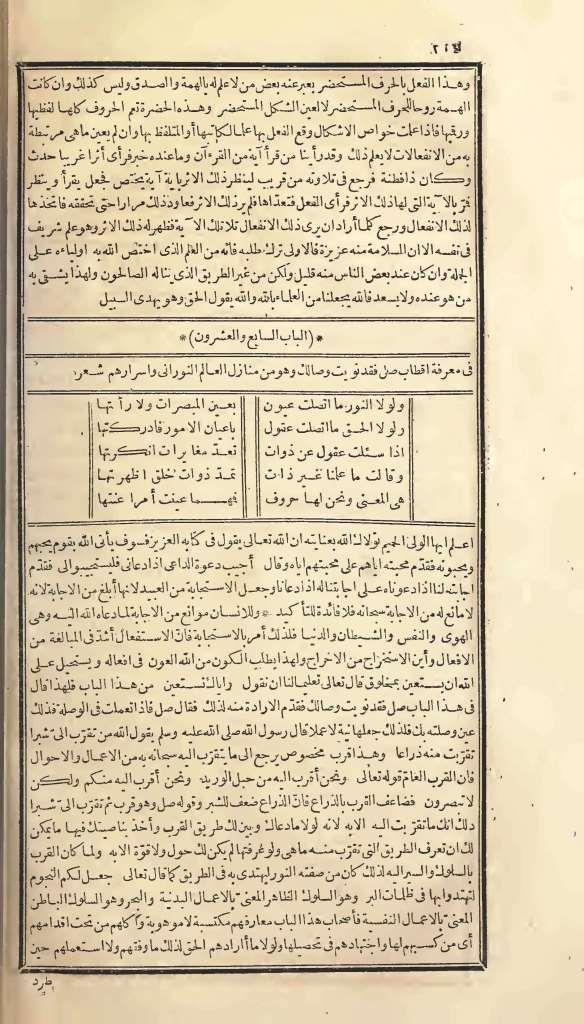 ٢١٤
وهذا الفعل بالحرف المستحضر يعبر عنه بعض من لا علم له بالهمة والصدق وليس كذلك وان كانت
الهمة روحا للحرف المستحضر لا لعين الشكل المستحضر وهذه الحضرة تعم الحروف كلها لفظيها
ورقيها فاذا علمت خواص الاشكال وقع الفعل بها علما لكاتبها أو المتلفظ بها وان لم يعين ماهى مرتبطة
به من الانفعالات لا يعلم ذلك وقد رأينا من قرأ آية من القرءآن وما عنده خبر فرأى أثرا غريبا حدث
وكان ذا فطنة فرجع فى تلاوته من قريب لينظر ذلك الاثر باية آية يختص فجعل يقرأ وينظر
فمر بالآية التى لها ذلك الاثر فرأى الفعل فتعداها فلم ير ذلك الاثر فعاود ذلك مرارا حتى تحققه فاتخذها
لذلك الانفعال ورجع كلما أراد ان يرى ذلك الانفعال تلا تلك الآية فظهر له ذلك الاثر وهو علم شريف
فى نفسه الا ان السلامة منه عزيزة فالاولى ترك طلبه فانه من العلم الذى اختص الله به اولياءه على
الجملة وان كان عند بعض الناس منه قليل ولكن من غير الطريق الذى يناله الصالحون ولهذا يشقى به
من هو عنده ولا يسعد فالله يجعلنا من العلماء بالله والله يقول الحق وهو يهدى السبيل
* (الباب السابع والعشرون) *
فى معرفة اقطاب صل فقد نويت وصالك وهو من منازل العالم النورانى واسرارهم شعر.
ولولا النور ما اتصلت عيون بعين المبصرات ولا رأتها
ولولا الحق ما اتصلت عقول باعيان الامور فادركتها
اذا سئلت عقول عن ذوات تعد مغايرات انكرتها
وقالت ما علمنا غير ذات تمد ذوات خلق اظهرتها
هى المعنى ونحن لها حروف فهما عينت أمرا عنتها
اعلم ايها الولى الحميم تولاك الله بعنايته ان الله تعالى يقول فى كتابه العزيز فسوف يأتى الله بقوم يحبهم
ويحبونه فقدم محبته اياهم على محبتهم اياه وقال أجيب دعوة الداعى اذا دعانى فليستجيبوا لى فقدم
اجابته لنا اذا دعوناه على اجابتنا له اذا دعانا وجعل الاستجابة من العبد لانها أبلغ من الاجابة لانه
لا مانع له من الاجابة سبحانه فلا فائدة للتأكيد * وللانسان موانع من الاجابة لما دعاه الله اليه وهى
الهوى والنفس والشيطان والدنيا فلذلك أمر بالاستجابة فان الاستفعال أشد فى المبالغة من
الافعال وأين الاستخراج من الاخراج ولهذا يطلب الكون من الله العون فى افعاله ويستحيل على
الله ان يستعين بمخلوق قال تعالى تعليما لنا ان نقول واياك نستعين من هذا الباب فلهذا قال
فى هذا الباب صل فقد نويت وصالك فقدم الارادة منه لذلك فقال صل فاذا تعملت فى الوصلة فذلك
عين وصلته بك فلذلك جعلها نية لا عملا قال رسول الله صلى الله عليه وسلم يقول الله من تقرب الى شبرا
تقربت منه ذراعا وهذا قرب مخصوص يرجع الى ما يتقرب اليه سبحانه به من الاعمال والاحوال
فان القرب العام قوله تعالى ونحن أقرب اليه من حبل الوريد ونحن أقرب اليه منكم ولكن
لا تبصرون فضاعف القرب بالذراع فان الذراع ضعف للشبر وقوله صل وهو قرب ثم تقرب الى شبرا
دلك انك ما تقربت اليه الا به لانه لولا ما دعاك وبين لك طريق القرب وأخذ بناصيتك فيها ما يمكن
لك ان تعرف الطريق التى تقرب منه ما هى ولو عرفتها لم يكن لك حول ولا قوة الا به ولما كان القرب
بالسلوك والسفر اليه لذلك كان من صفته النور ليهتدى به فى الطريق كما قال تعالى جعل لكم النجوم
لتهتدوا بها فى ظلمات البر وهو السلوك الظاهر المعنى بالاعمال البدنية والبحر وهو السلوك الباطن
المعنى بالاعمال النفسية فأصحاب هذا الباب معارفهم مكتسبة لا موهوبة وأكلهم من تحت اقدامهم
أى من كسبهم لها واجتهادهم فى تحصيلها ولولا ما أرادهم الحق لذلك ما وفقهم ولا استعملهم حين
طرد